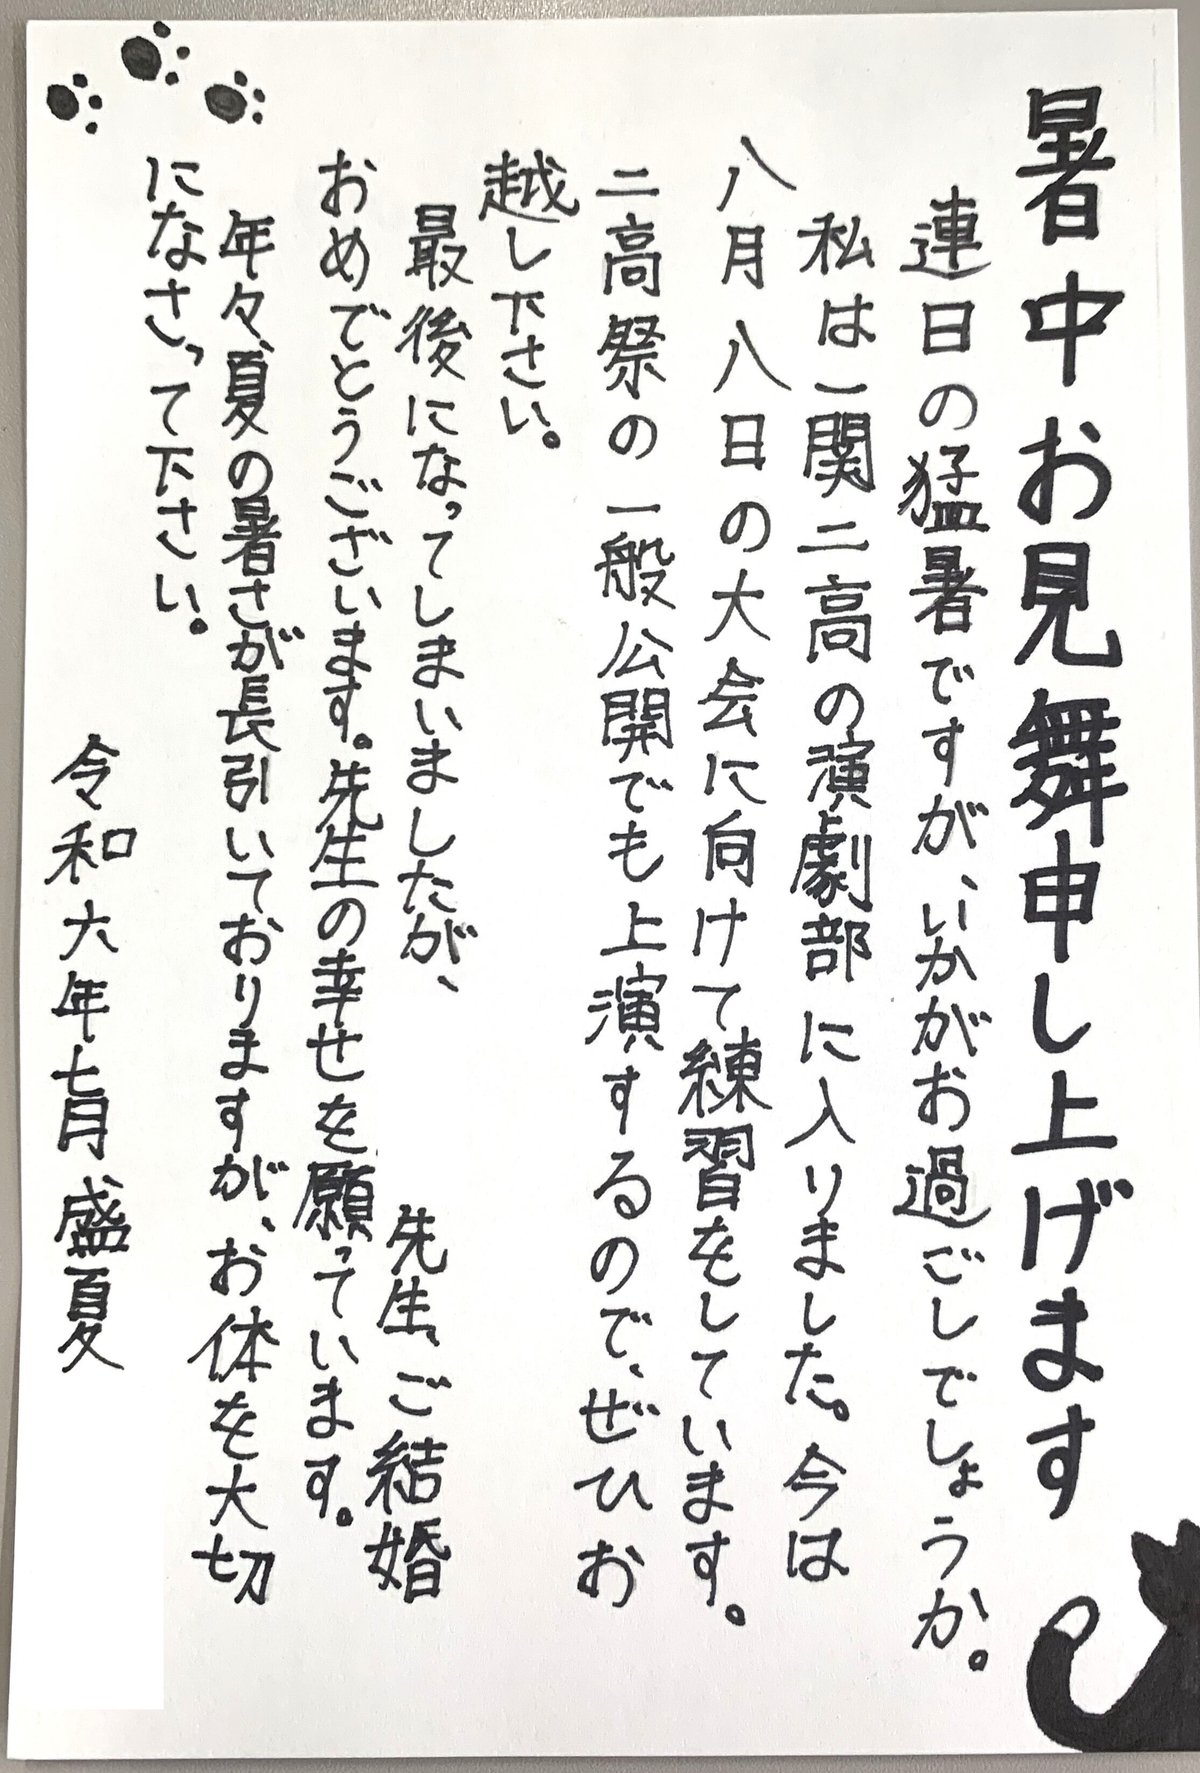 暑中お見舞申し上げます
連日の猛暑ですが、いかがお過ごしでしょうか。
私は一関二高の演劇部に入りました。今は
八月八日の大会に向けて練習をしています。
二高祭の一般公開でも上演するので、ぜひお
越し下さい。
最後になってしまいましたが、 先生、ご結婚
おめでとうございます。先生の幸せを願っています。
年々、夏の暑さが長引いておりますが、お体を大切
になさって下さい。
令和六年七月盛夏